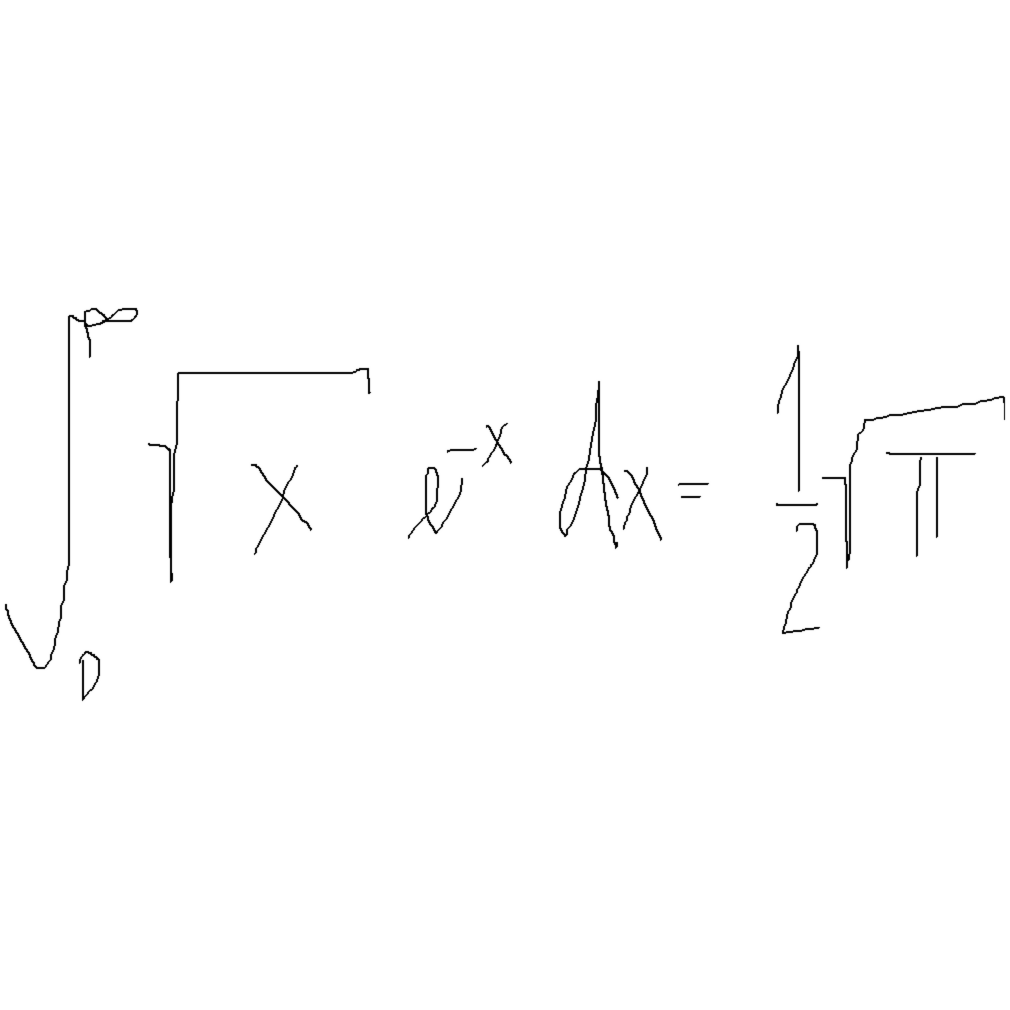 ∫₀^∞ √x e^{-x} dx = \frac{1}{2}√π